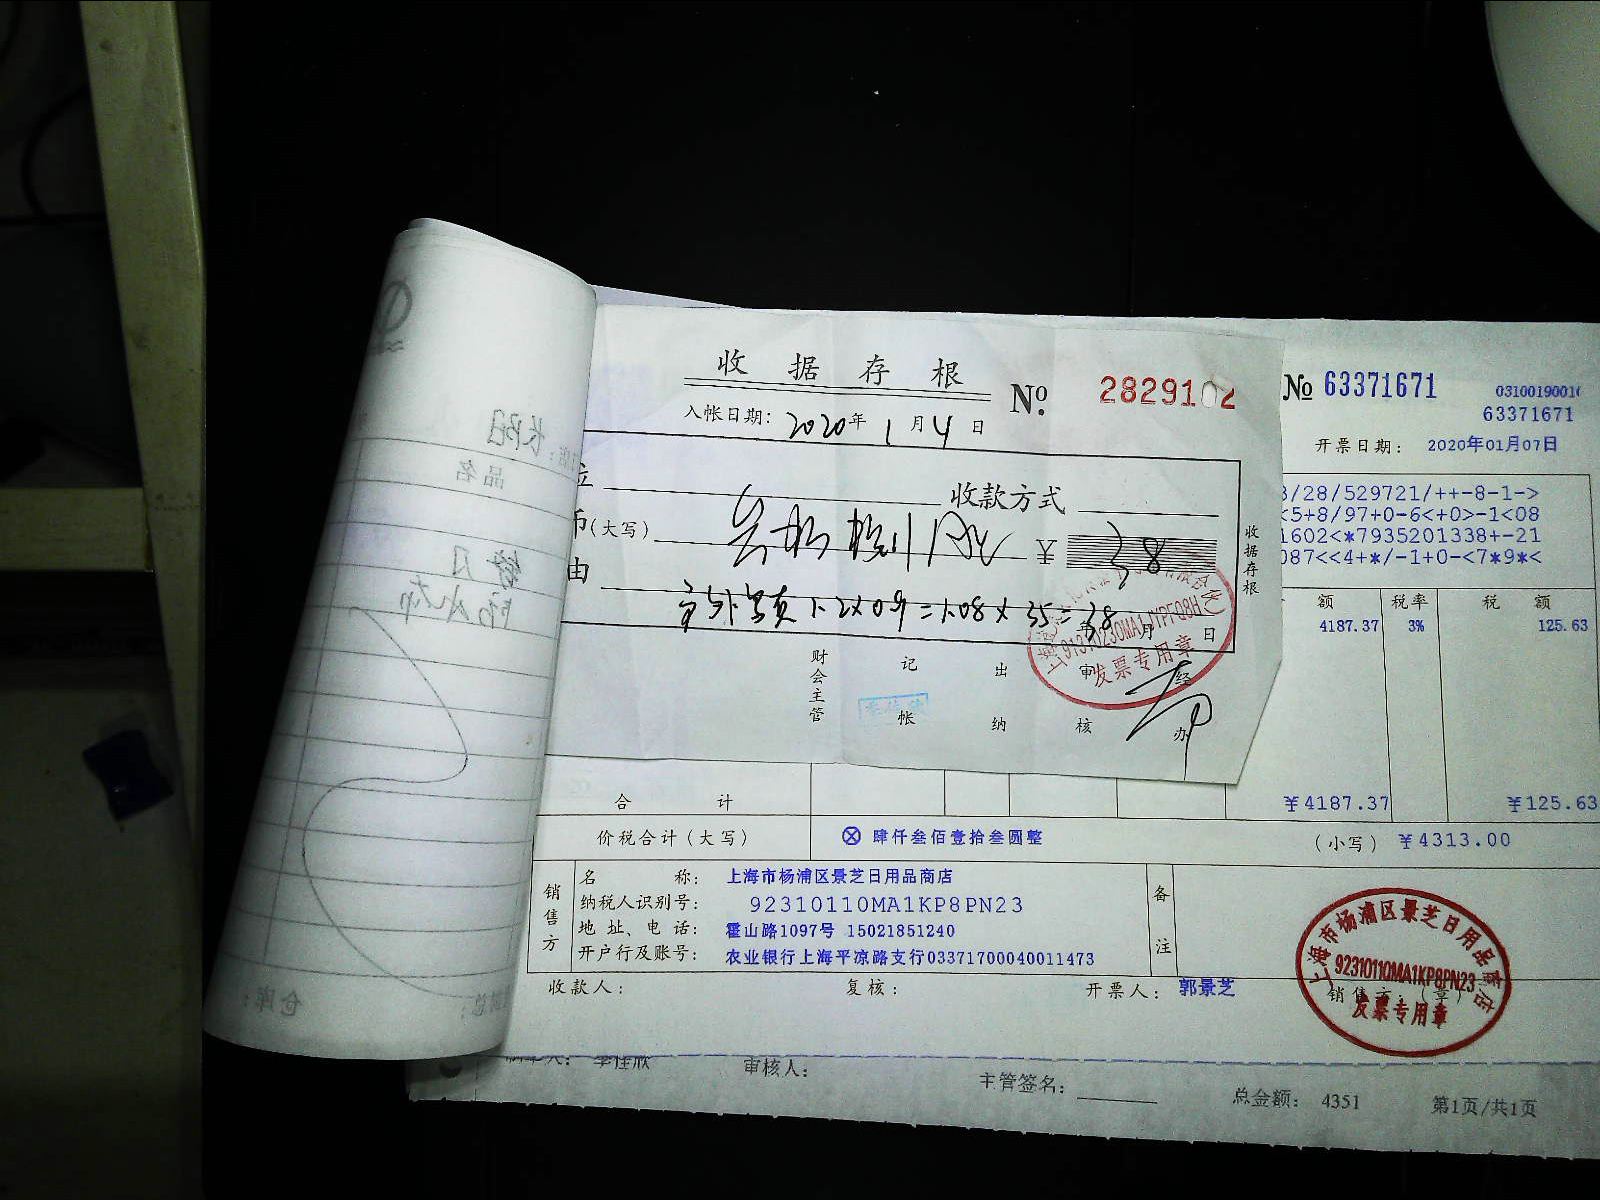 收据存根
No. 2829102
入帐日期: 2020年1月4日
收款方式
(大写)
¥ 38
由
1.2×0.9=1.08×35=38
年 月 日
收据存根
财会主管 记帐 出纳 审核 经办
发票专用章
No 63371671
63371671
开票日期: 2020年01月07日
/28/529721/++-8-1->
<5+8/97+0-6<+0>-1<08
1602<*7935201338+-21
087<<4+*/-1+0-<7*9*<
额 税率 税额
4187.37 3% 125.63
合计 ¥4187.37 ¥125.63
价税合计(大写) ⊗肆仟叁佰壹拾叁圆整 (小写) ¥4313.00
销售方
名称: 上海市杨浦区景芝日用品商店
纳税人识别号: 92310110MA1KP8PN23
地址、电话: 霍山路1097号 15021851240
开户行及账号: 农业银行上海平凉路支行03371700040011473
备注
收款人: 复核: 开票人: 郭景芝 销售方:(章)
上海市杨浦区景芝日用品商店
92310110MA1KP8PN23
发票专用章
李佳欣 审核人: 主管签名: 总金额: 4351 第1页/共1页
长阳
品名
仓库: